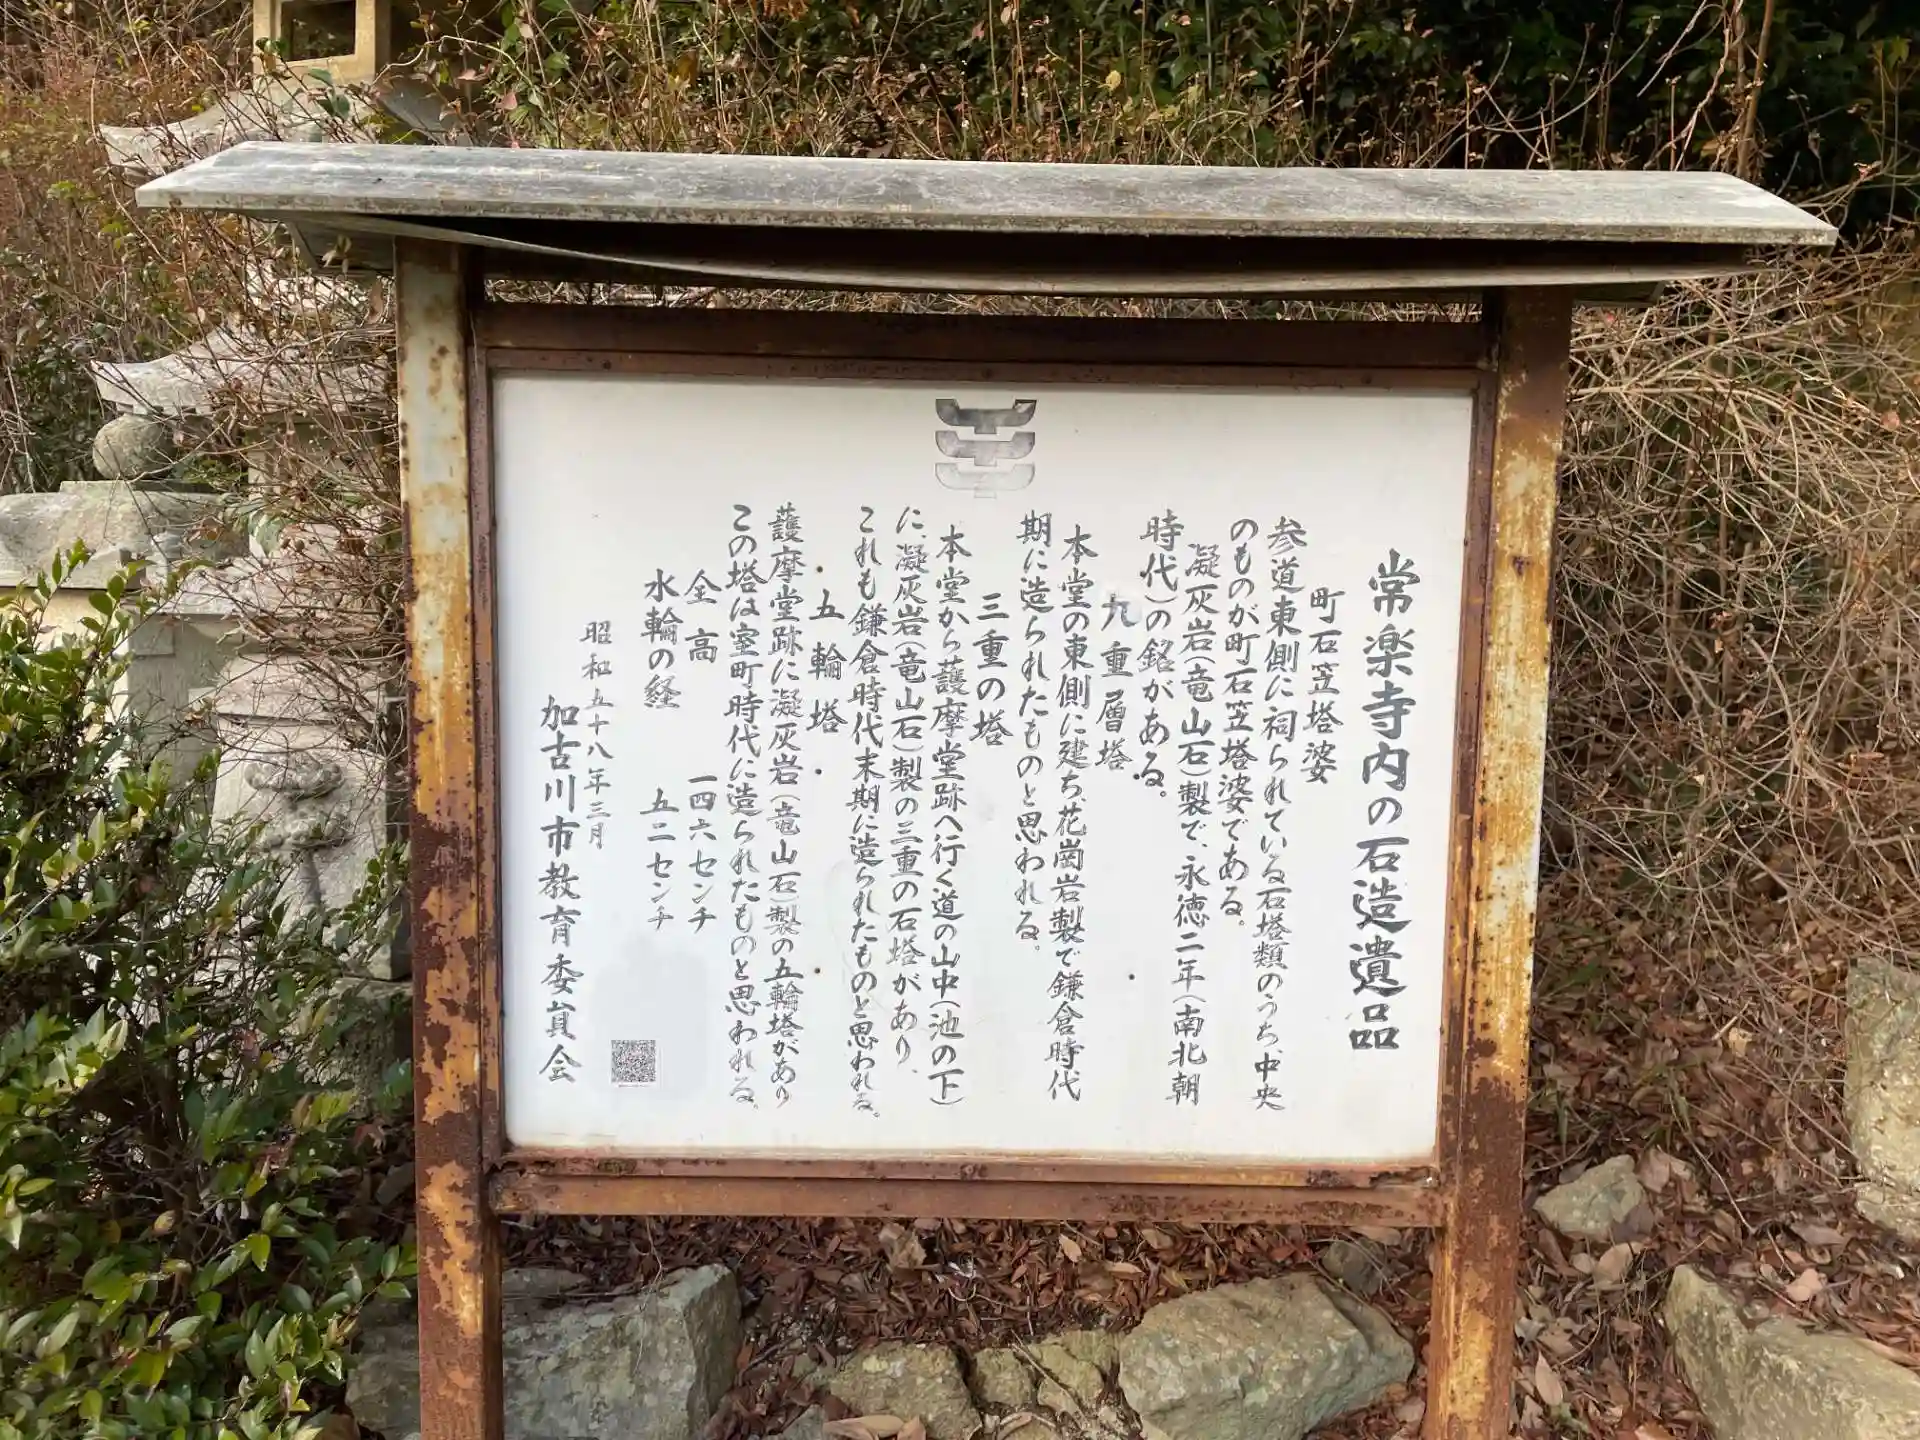 常楽寺内の石造遺品
町石笠塔婆
参道東側に祠られている石塔類のうち、中央
のものが町石笠塔婆である。
凝灰岩(竜山石)製で、永徳二年(南北朝
時代)の銘がある。
九重層塔
本堂の東側に建ち、花崗岩製で鎌倉時代
期に造られたものと思われる。
三重の塔
本堂から護摩堂跡へ行く道の山中(池の下)
に、凝灰岩(竜山石)製の三重の石塔があり、
これも鎌倉時代末期に造られたものと思われる。
五輪塔
護摩堂跡に凝灰岩(竜山石)製の五輪塔があり
この塔は室町時代に造られたものと思われる。
全高 一四六センチ
水輪の経 五二センチ
昭和五十八年三月
加古川市教育委員会